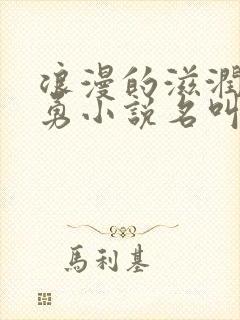 浪漫的滋潤
勇小說名叫
馬利基